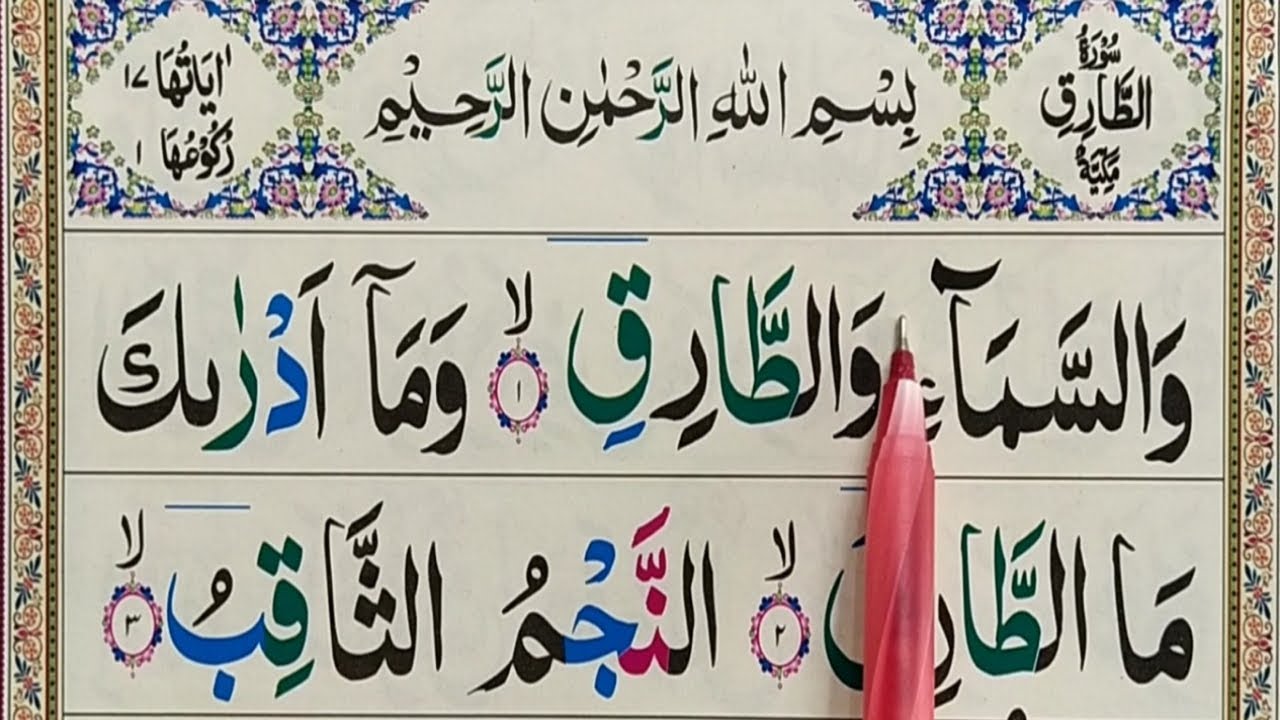 سُوْرَةُ الطَّارِقِ مَكِّيَّةٌ
بِسْمِ اللّٰهِ الرَّحْمٰنِ الرَّحِيْمِ
اٰيَاتُهَا ١٧
رُكُوْعُهَا ١
وَالسَّمَآءِ وَالطَّارِقِ ۙ ١ وَمَآ اَدْرٰىكَ
مَا الطَّارِقُ ۙ ٢ النَّجْمُ الثَّاقِبُ ۙ ٣